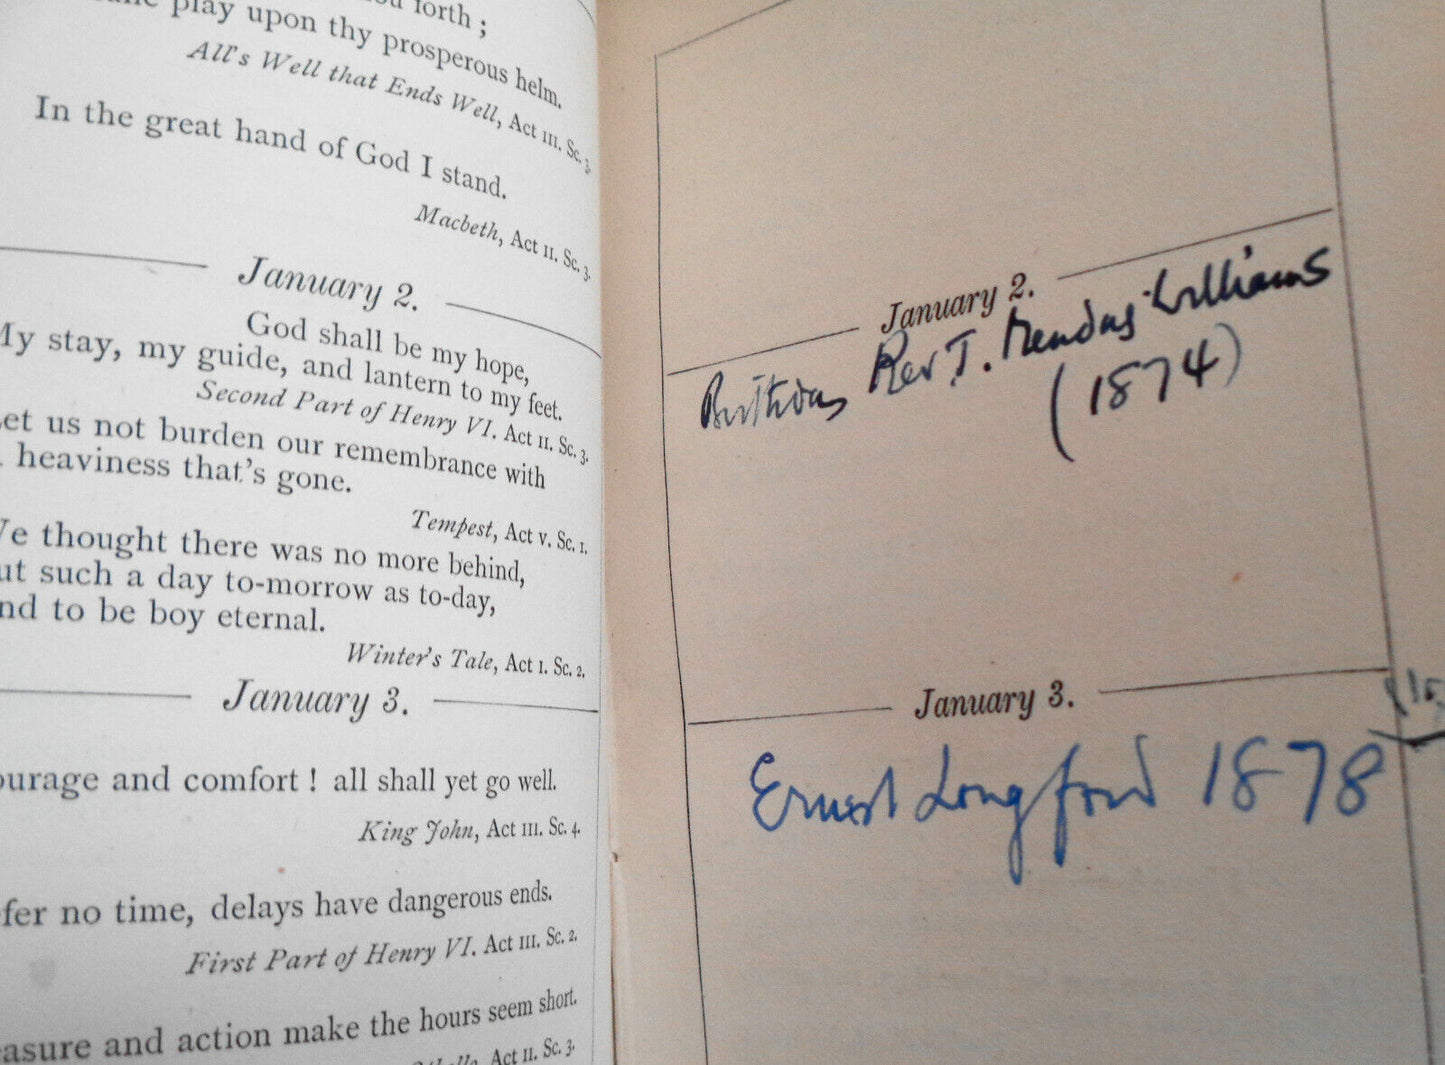 play upon thy prosperous helm.
All's Well that Ends Well, Act III. Sc. 3.
In the great hand of God I stand.
Macbeth, Act II. Sc. 3.
January 2.
God shall be my hope,
My stay, my guide, and lantern to my feet.
Second Part of Henry VI. Act II. Sc. 3.
Let us not burden our remembrance with
heaviness that's gone.
Tempest, Act V. Sc. 1.
We thought there was no more behind,
But such a day to-morrow as to-day,
And to be boy eternal.
Winter's Tale, Act I. Sc. 2.
January 3.
ourage and comfort! all shall yet go well.
King John, Act III. Sc. 4.
fer no time, delays have dangerous ends.
First Part of Henry VI. Act III. Sc. 2.
easure and action make the hours seem short.
Act II. Sc. 3.
January 2.
Birthday Rev. J. Mendus Williams
(1874)
January 3.
Ernest Longford 1878